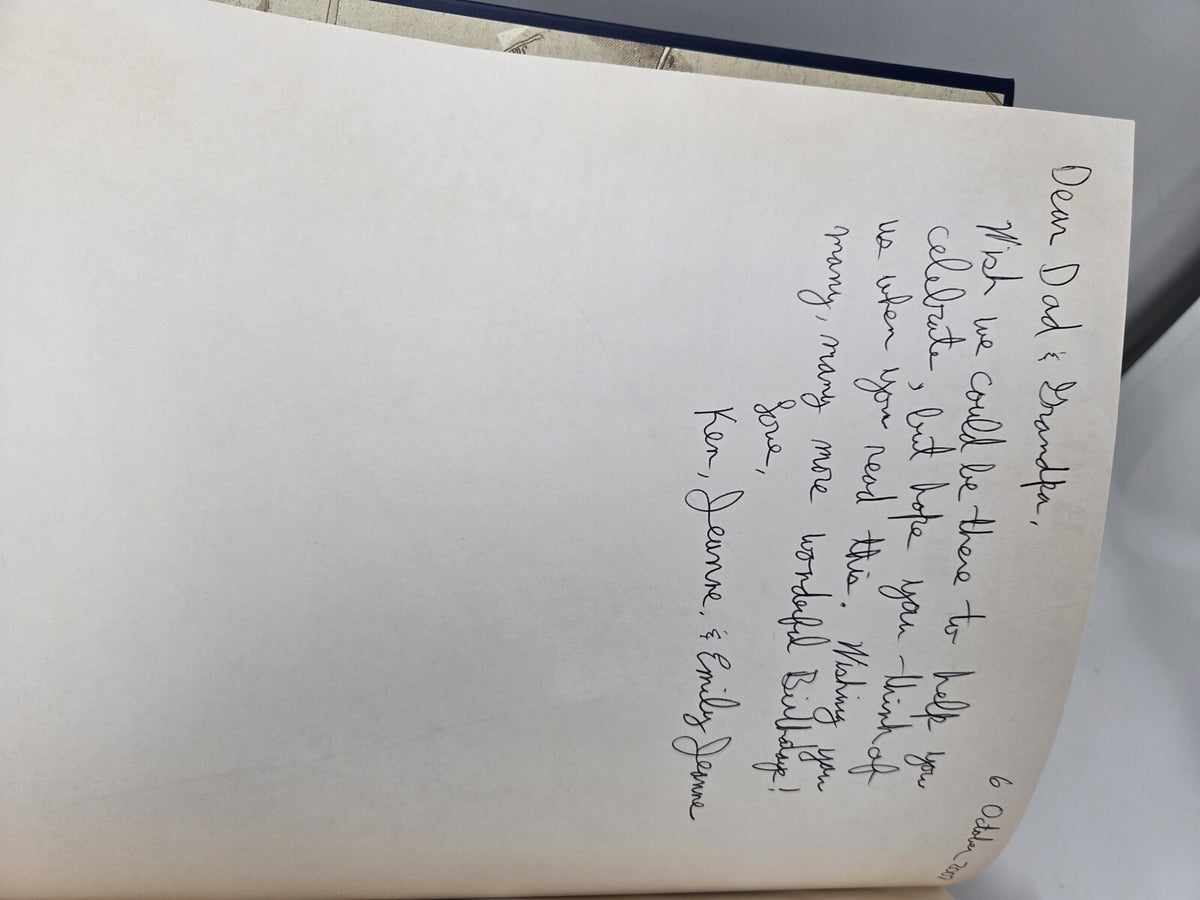 6 October
Dear Dad & Grandpa,
Wish we could be there to help you
celebrate, but hope you think of
us when you read this. Wishing you
many, many more wonderful Birthdays!
Love,
Ken, Jeanne, & Emily Jeanne